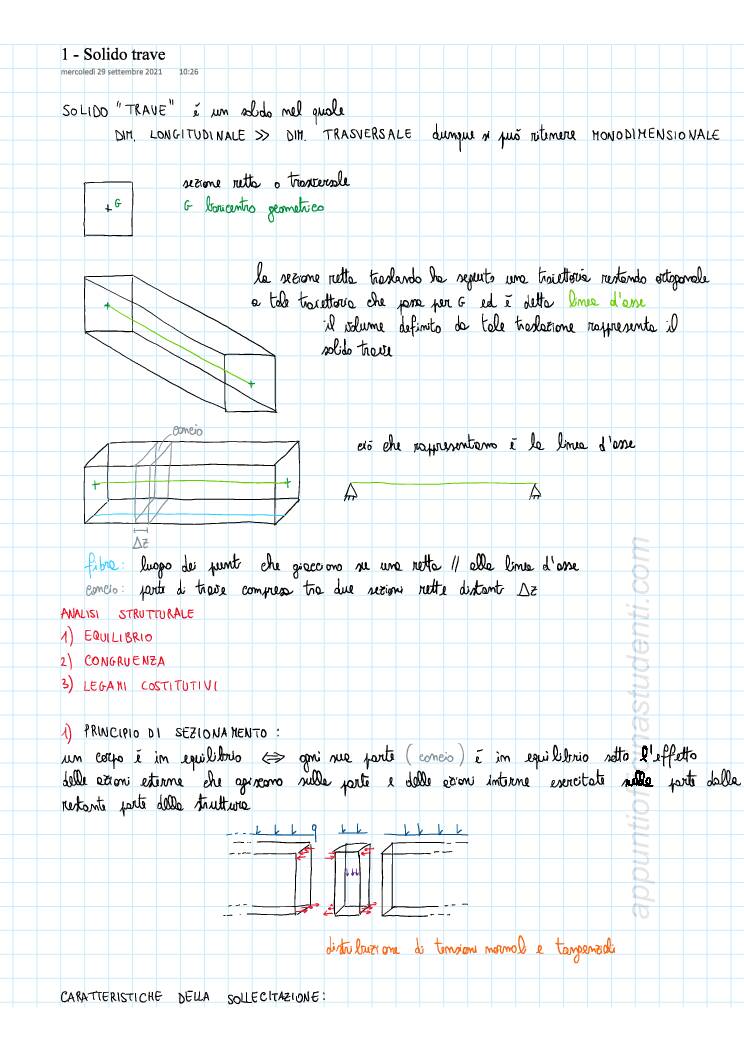 1 - Solido trave
mercoledì 29 settembre 2021 10:26
SOLIDO "TRAVE" è un solido nel quale
DIM. LONGITUDINALE >> DIM. TRASVERSALE dunque si può ritenere MONODIMENSIONALE
sezione retta o trasversale
G
G baricentro geometrico
la sezione retta traslando ha seguito una traiettoria restando ortogonale
a tale traiettoria che passa per G ed è detta linea d'asse
il volume definito da tale traslazione rappresenta il
solido trave
concio
ciò che rappresentiamo è la linea d'asse
Δz
fibra: luogo dei punti che giacciono su una retta // alla linea d'asse
concio: parte di trave compresa tra due sezioni rette distanti Δz
ANALISI STRUTTURALE
1) EQUILIBRIO
2) CONGRUENZA
3) LEGAMI COSTITUTIVI
1) PRINCIPIO DI SEZIONAMENTO:
un corpo è in equilibrio ⇔ ogni sua parte (concio) è in equilibrio sotto l'effetto
delle azioni esterne che agiscono sulla parte e delle azioni interne esercitate sulla parte dalla
restante parte della struttura
q
distribuzione di tensioni normali e tangenziali
CARATTERISTICHE DELLA SOLLECITAZIONE:
appuntiottimastudenti.com